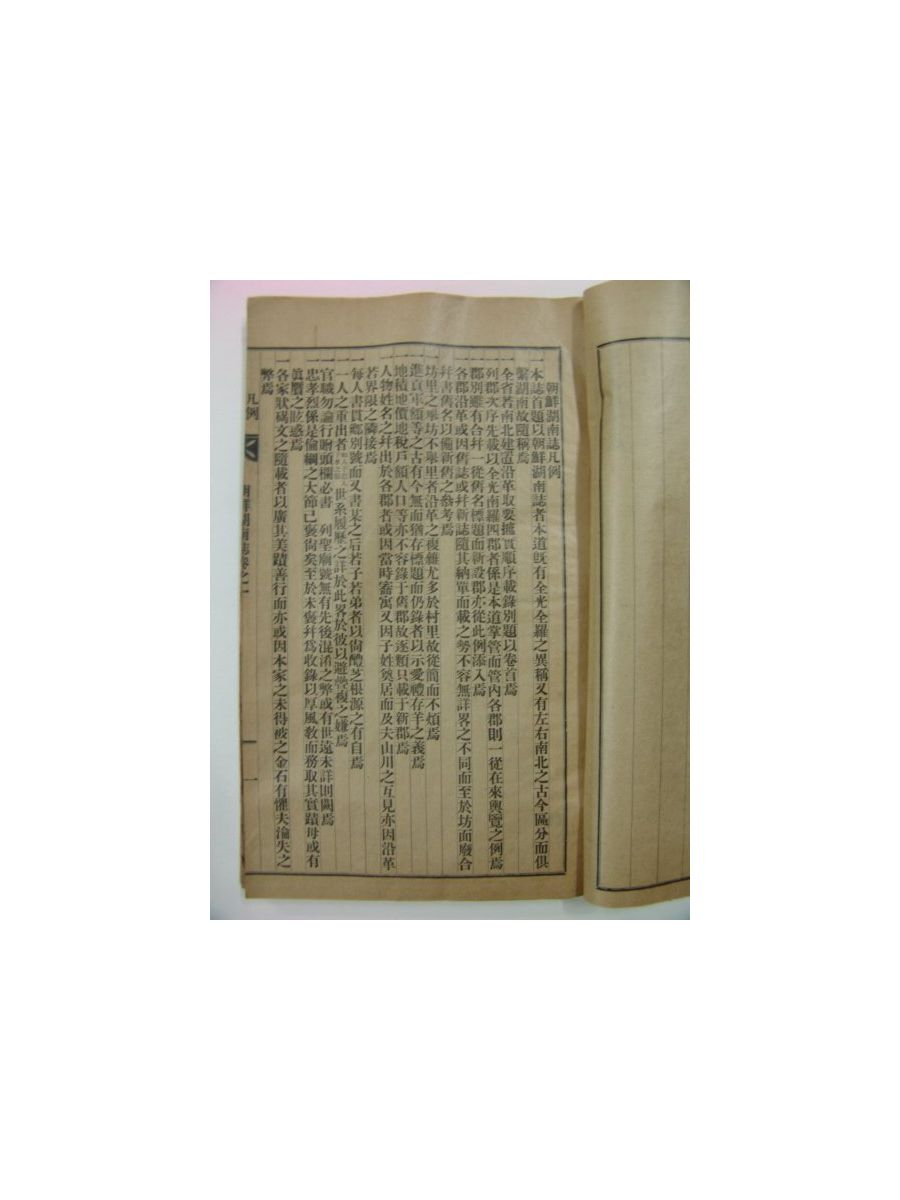 朝鮮湖南誌凡例
一本誌首題以朝鮮湖南誌者本道旣有全光全羅之異稱又有左右南北之古今區分而俱
繫湖南故隨稱焉
一全省若南北建置沿革取要據實順序載錄別題以卷首焉
一列郡次序先載以全光南羅四郡者係是本道掌管而管內各郡則一從在來輿覽之例焉
一郡別雖有合幷一從舊名標題而新設郡亦從此例添入焉
一各郡沿革或因舊誌或幷新誌隨其納單而載之勢不容無詳畧之不同而至於坊面廢合
幷書舊名以備新舊之叅考焉
一坊里之擧坊不擧里者沿革之複雜尤多於村里故從簡而不煩焉
一進貢軍額等之古有今無而猶存標題而仍錄者以示愛禮存羊之義焉
一地積地價地稅戶額人口等亦不容錄于舊郡故逐類只載于新郡焉
一人物姓名之幷出於各郡者或因當時寓又因子姓奠居而及夫山川之互見亦因沿革
若界限之隣接焉
一每人書貫鄉別號而又書某之后若子若弟者以尙醴芝根源之有自焉
一一人之重出者世系履歷之詳於此畧於彼以避疊複之嫌焉
一官職勿論行贈頭欄必書 列聖廟號無有先後混淆之弊或有世遠未詳則闕焉
一忠孝烈係是倫綱之大節已褒尙矣至於未褒幷爲收錄以厚風敎而務取其實蹟毋或有
眞贋之眩惑焉
一各家狀碣文之隨載者以廣其美蹟善行而亦或因本家之未得被之金石有懼夫淪失之
弊焉
凡例
朝鮮湖南誌卷之一
一